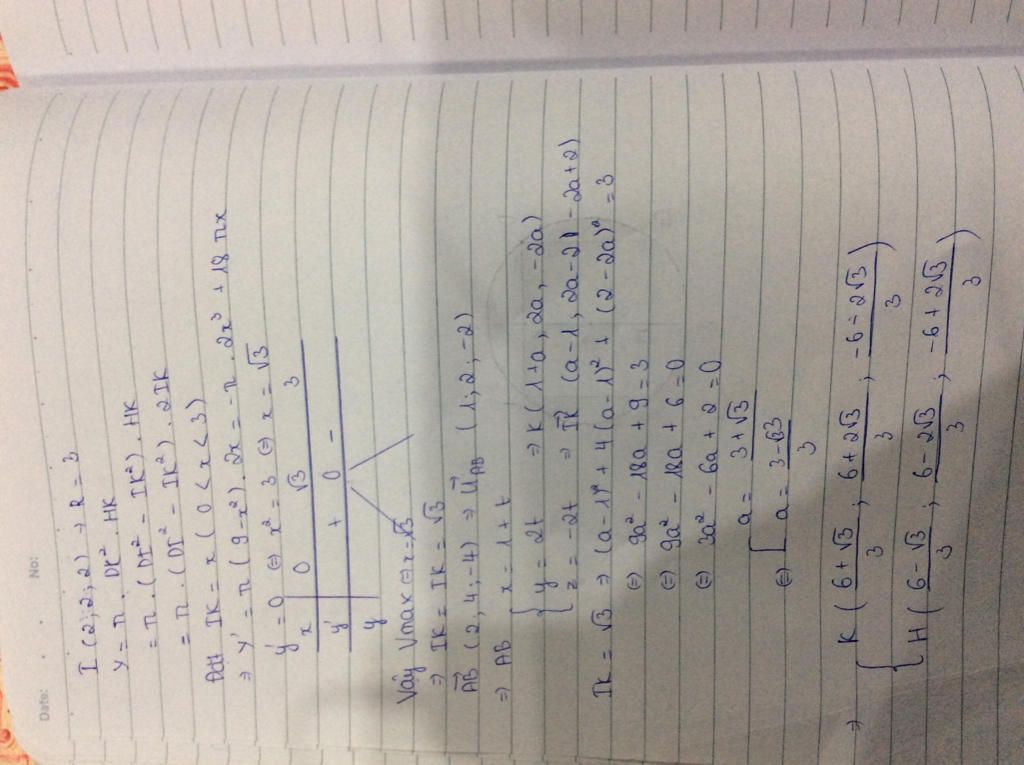 Date: No:
I (2; 2; -2) → R = 3
V = π . DK² . HK
= π . (DI² - IK²) . HK
= π . (DI² - IK²) . 2IK
Đặt IK = x (0 < x < 3)
⇒ y' = π (9 - x²) . 2x = -π . 2x³ + 18 πx
y' = 0 ⇔ x² = 3 ⇔ x = √3
x 0 √3 3
y' + 0 -
y
Vậy Vmax ⇔ x = √3
⇒ IK = IK = √3
AB⃗ (2, 4, -4) ⇒ u⃗AB (1, 2, -2)
⇒ AB { x = 1 + t
y = 2t ⇒ K (1+a, 2a, -2a)
z = -2t ⇒ IK⃗ (a-1, 2a-2, -2a+2)
IK = √3 ⇒ (a-1)² + 4(a-1)² + (2-2a)² = 3
⇔ 9a² - 18a + 9 = 3
⇔ 9a² - 18a + 6 = 0
⇔ 3a² - 6a + 2 = 0
⇔ [ a = (3+√3)/3
a = (3-√3)/3
⇒ { K ( (6+√3)/3 ; (6+2√3)/3 ; (-6-2√3)/3 )
H ( (6-√3)/3 ; (6-2√3)/3 ; (-6+2√3)/3 )